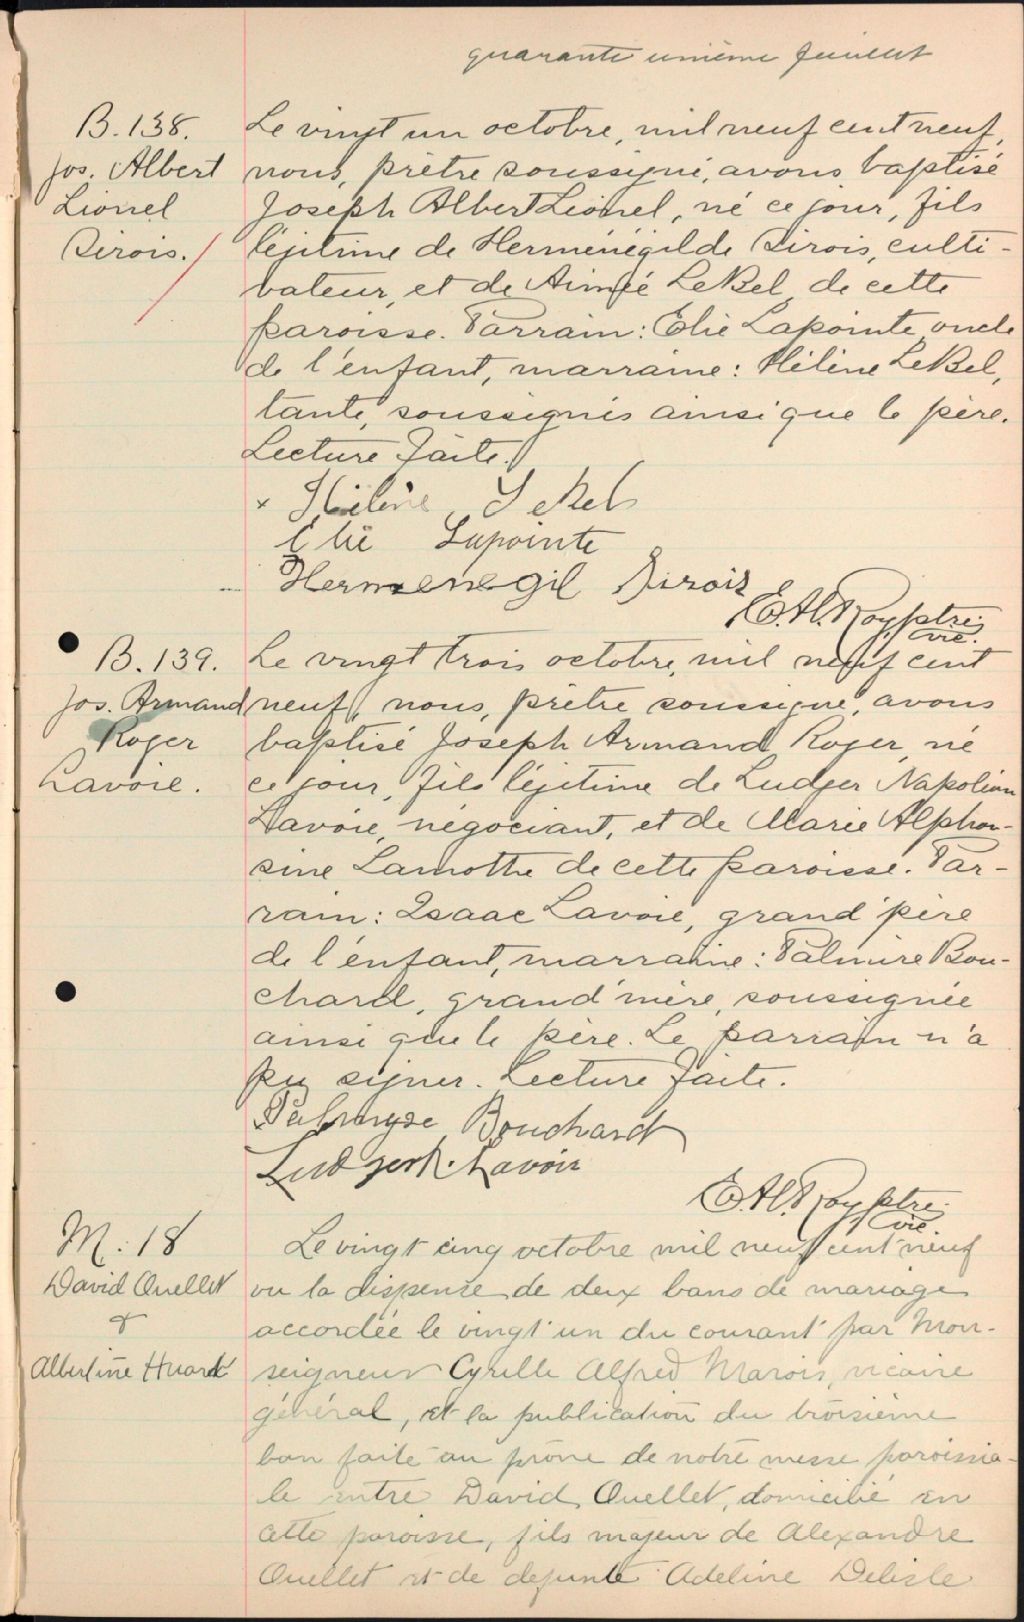 quarante unième feuillet
B. 138.
Jos. Albert
Lionel
Sirois.
Le vingt un octobre, mil neuf cent neuf,
nous, prêtre soussigné, avons baptisé
Joseph Albert Lionel, né ce jour, fils
légitime de Herménégilde Sirois, culti-
vateur, et de Aimée LeBel de cette
paroisse. Parrain: Elie Lapointe, oncle
de l'enfant, marraine: Hélène LeBel,
tante, soussignés ainsi que le père.
Lecture faite.
x Hélène LeBel
Elie Lapointe
Hermenegil Sirois
E. H. Roy, ptre
vic.
B. 139.
Jos. Armand
Roger
Lavoie.
Le vingt trois octobre, mil neuf cent
neuf, nous, prêtre soussigné, avons
baptisé Joseph Armand Roger, né
ce jour, fils légitime de Ludger Napoléon
Lavoie, négociant, et de Marie Alphon-
sine Lamothe de cette paroisse. Par-
rain: Isaac Lavoie, grand'père
de l'enfant, marraine: Palmire Bou-
chard, grand'mère, soussignée
ainsi que le père. Le parrain n'a
pu signer. Lecture faite.
Palmyre Bouchard
Ludger N. Lavoie
E. H. Roy ptre
vic.
M. 18
David Ouellet
&
Albertine Huard
Le vingt cinq octobre mil neuf cent neuf
vu la dispense de deux bans de mariage
accordée le vingt un du courant par Mon-
seigneur Cyrille Alfred Marois, vicaire
général, et la publication du troisième
ban faite au prône de notre messe paroissia-
le entre David Ouellet, domicilié en
cette paroisse, fils majeur de Alexandre
Ouellet et de defunte Adeline Delisle